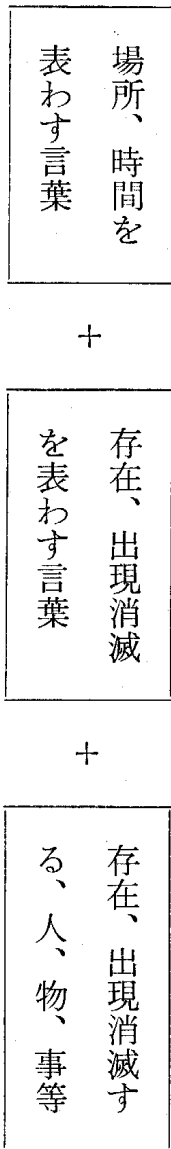 場所、時間を
表わす言葉
＋
存在、出現消滅
を表わす言葉
＋
存在、出現消滅す
る、人、物、事等